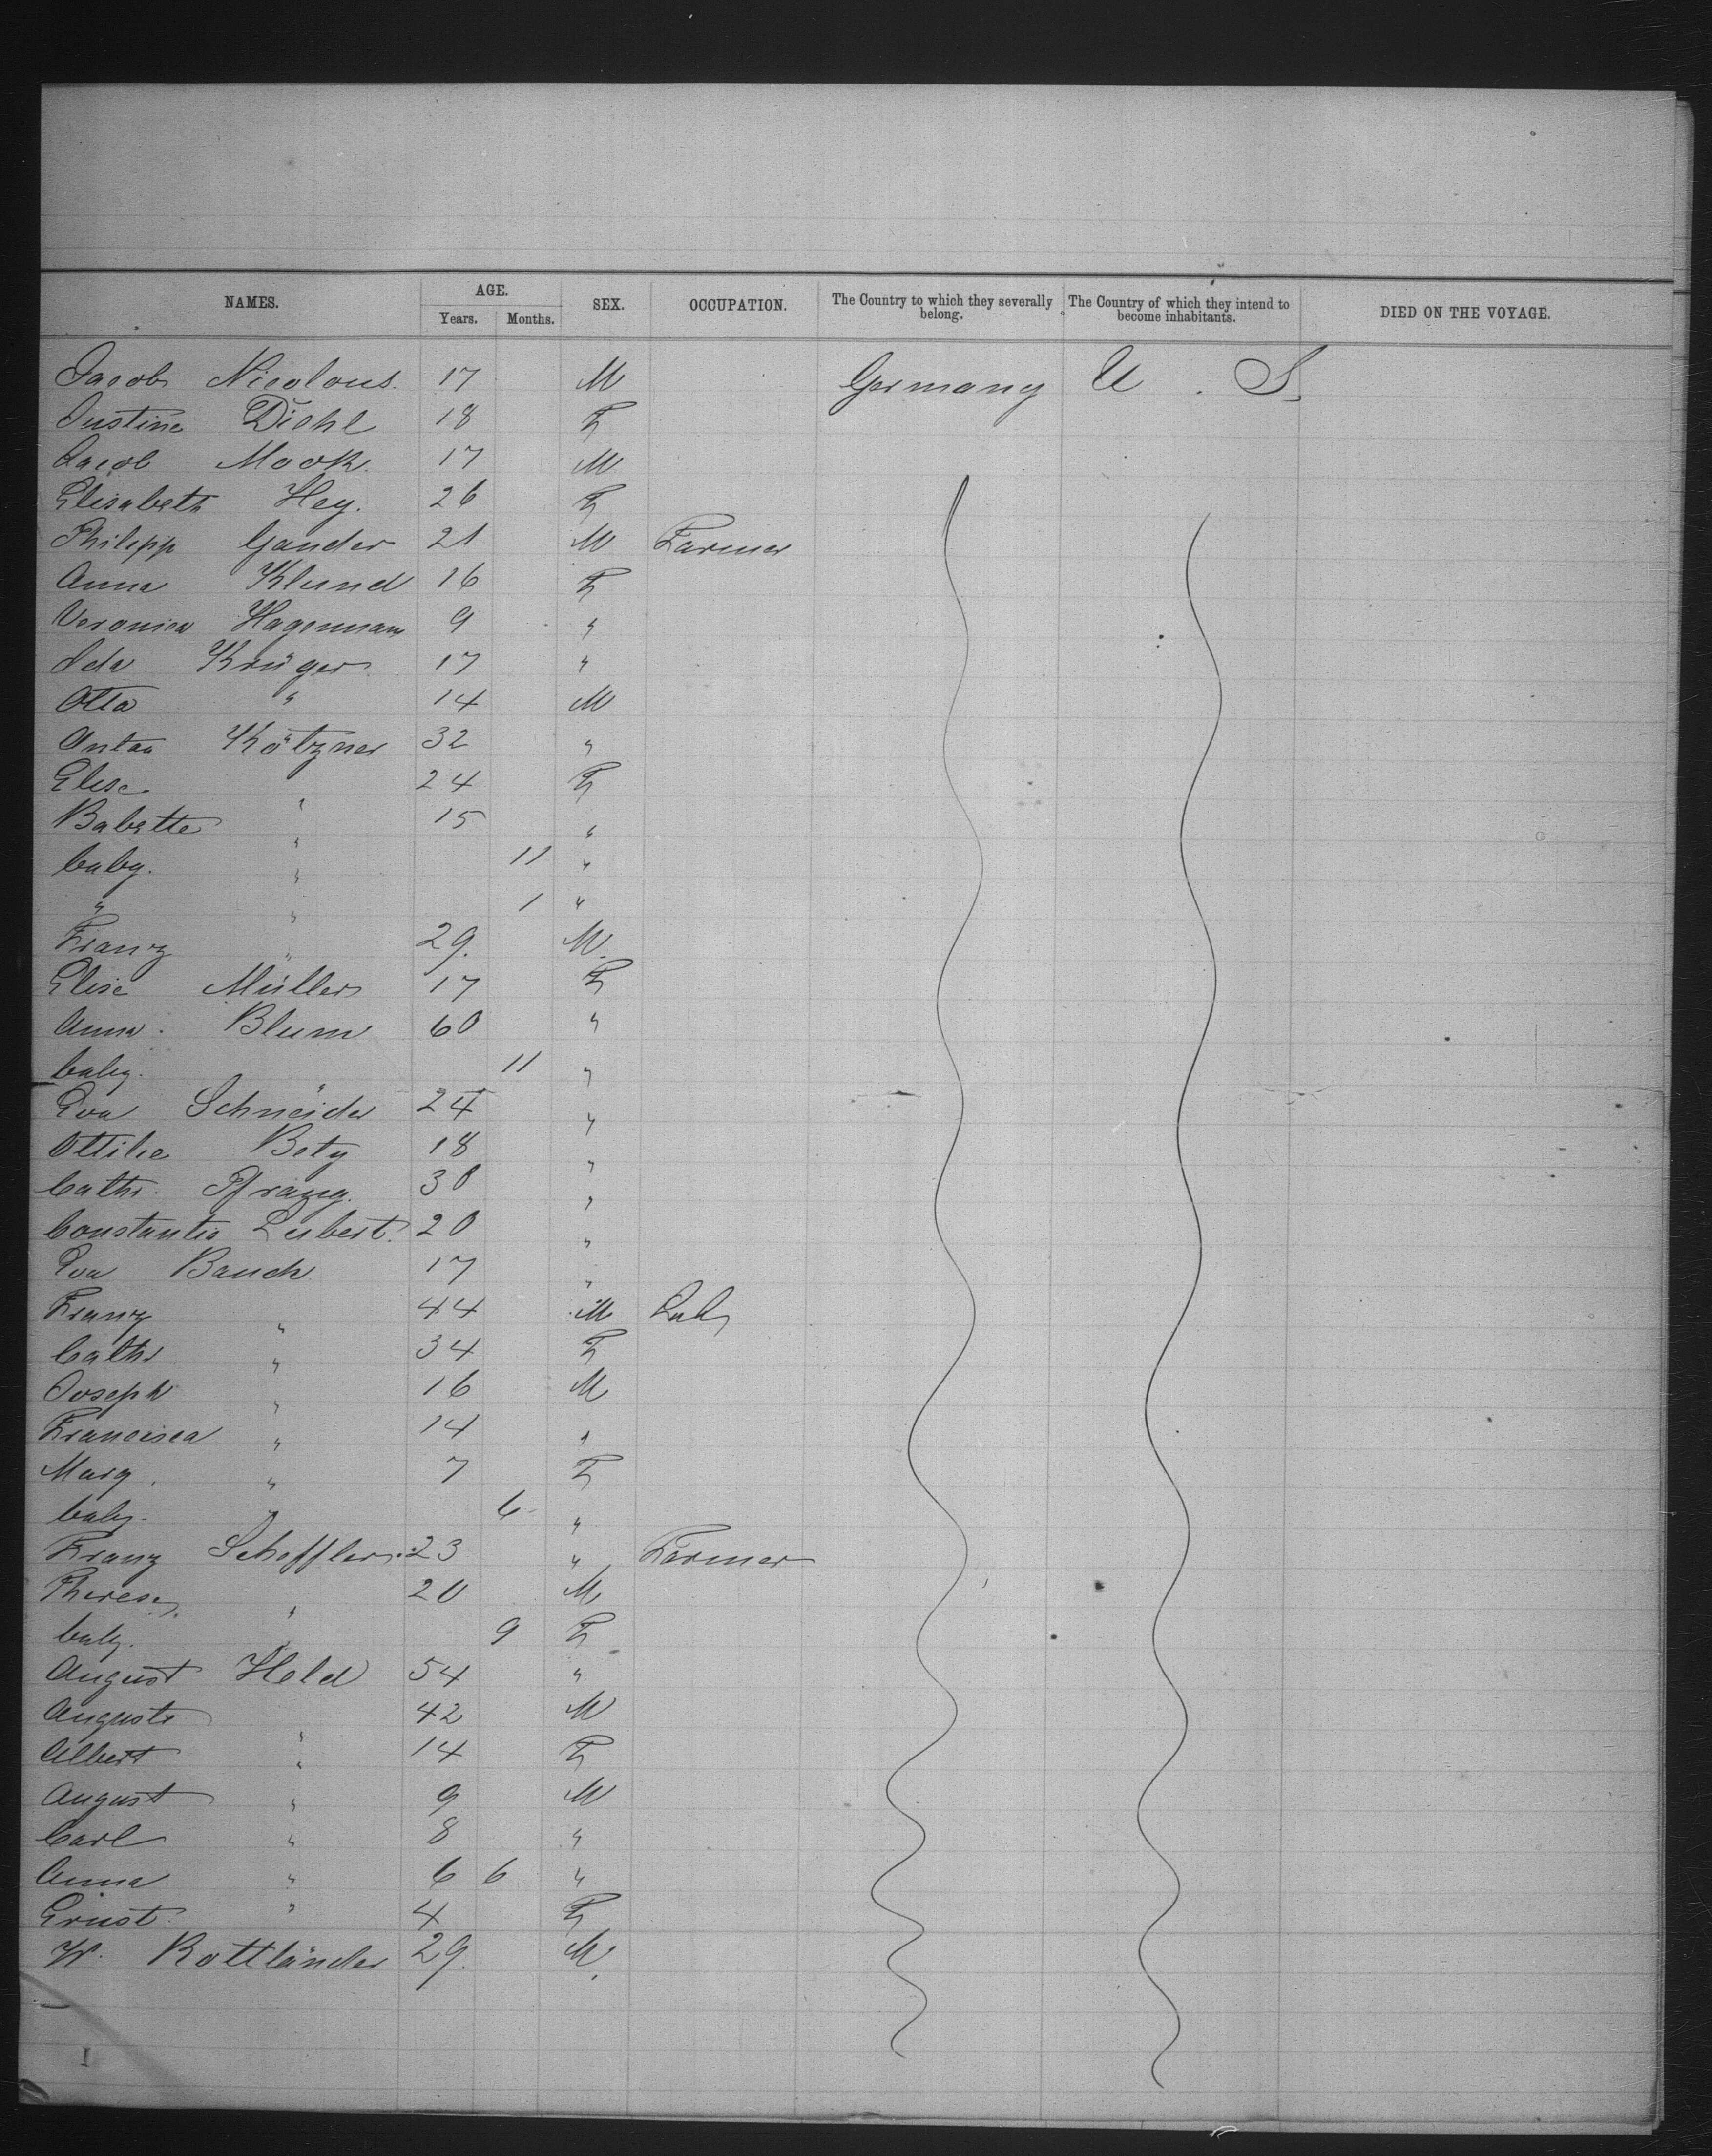 NAMES. AGE. SEX. OCCUPATION. The Country to which they severally belong. The Country of which they intend to become inhabitants. DIED ON THE VOYAGE.
Years. Months.
Jacob Nicolaus. 17 M Germany U. S.
Justine Diehl 18 F
Jacob Mook. 17 M
Elisabeth Hey. 26 F
Philipp Gander 21 M Farmer
Anna Klund 16 F
Veronica Hagemann 9 "
Ida Krüger 17 "
Otto " 14 M
Anton Kötzner 32 "
Elise " 24 F
Babette " 15 "
baby. " 11 "
" " 1 "
Franz " 29. M.
Elise Müller 17 F
Anna Blum 60 "
baby. " 11 "
Eva Schneider 24 "
Ottilie Betz 18 "
Cathr. Pfrang. 30 "
Constantia Leibert. 20 "
Eva Bauch 17 "
Franz " 44 M Lab
Cathr " 34 F
Joseph " 16 M
Francisca " 14 "
Marg. " 7 F
baby. " 6 "
Franz Scheffler. 23 " Farmer
Therese " 20 M
baby. " 9 F
August Held 54 "
Auguste " 42 M
Albert " 14 F
August " 9 M
Carl " 8 "
Anna " 6 6 "
Ernst. " 4 F
W. Rottländer 29. M.